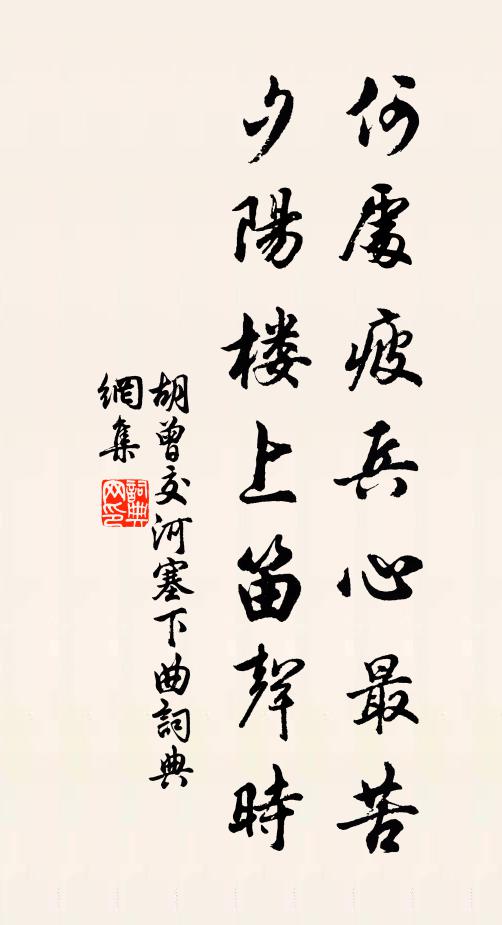 何處疲兵心最苦
夕陽楼上笛聲時
胡曾交河塞下曲詞典
網集
詞典
网印